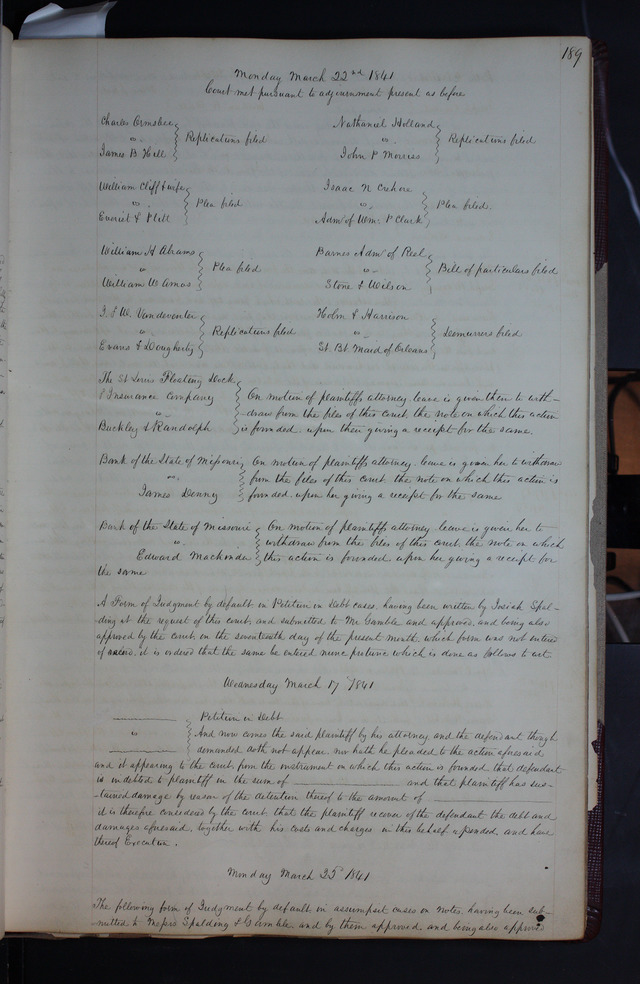 189
Monday March 22nd 1841
Court met pursuant to adjournment present as before
Charles Ormsbee
vs
James B Hill
Replications filed
Nathaniel Holland
vs
John P Morris
Replications filed
William Cliff & wife
vs
Plea filed
Isaac N
vs
Adm of Wm P Clark
Plea filed.
William H Abrams
vs
William W Amos
Plea filed
Barnes Adm of Reel
vs
Stone & Wilson
Bill of particulars filed
Vandeventer
vs
Evans & Dougherty
Replications filed
Holm & Harrison
vs
St. Bt. Maid of Orleans
Demurrers filed
The St Louis Floating Dock
& Insurance Company
vs
Buckley & Randolph
On motion of plaintiffs attorney leave is given them to with-
draw from the files of this court the note on which this action
is founded upon their giving a receipt for the same.
Bank of the State of Missouri
vs
James Denny
On motion of plaintiffs attorney leave is given her to withdraw
from the files of this court the note on which this action is
founded upon her giving a receipt for the same
Bank of the State of Missouri
vs
Edward
On motion of plaintiffs attorney leave is given her to
withdraw from the files of this court the note on which
this action is founded upon her giving a receipt for
the same
A Form of Judgment by default in Petition in Debt cases, having been written by Josiah Spal-
ding at the request of this court and submitted to Mr Gamble and approved, and being also
approved by the court on the seventeenth day of the present month, which form was not entered
of it is ordered that the same be entered nunc protunc which is done as follows to wit.
Wednesday March 17 1841
vs
Petition in Debt
And now comes the said plaintiff by his attorney and the defendant though
demanded doth not appear nor hath he pleaded to the action aforesaid
and it appearing to the court from the instrument on which this action is founded that defendant
is indebted to plaintiff in the sum of and that plaintiff has sus-
-tained damage by reason of the detention thereof to the amount of
it is therefore considered by the court that the plaintiff recover of the defendant the debt and
damages aforesaid, together with his costs and charges in this behalf expended and have
thereof Execution.
Monday March 1841
The following form of Judgment by default in assumpsit cases on notes, having been sub-
mitted to Messrs Spalding & Gamble and by them approved and being also approved